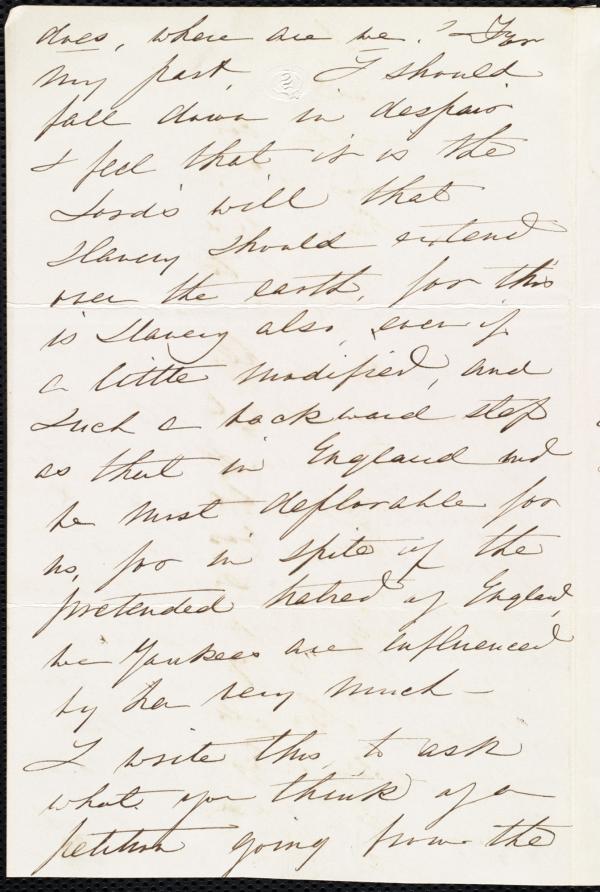 does, where are we? For
my part, I should
fall down in despair
& feel that it is the
Lord's will that
Slavery should extend
over the earth, for this
is Slavery also, even if
a little modified, and
such a backward step
as that in England wd
be most deplorable for
us, for in spite of the
pretended hatred of England,
we Yankees are influenced
by her very much –
I write this, to ask
what you think of a
petition going from the